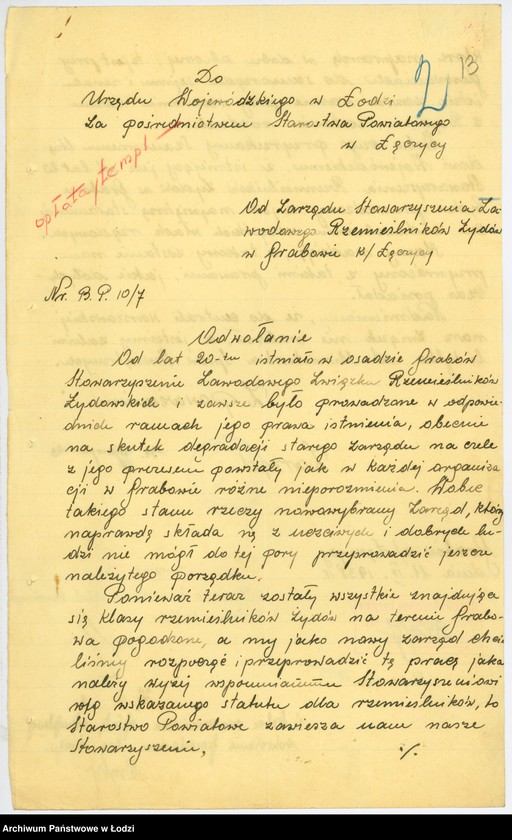 2 13
Do
Urzędu Wojewódzkiego w Łodzi
za pośrednictwem Starostwa Powiatowego
w Łęczycy
opłata/templ
Od Zarządu Stowarzyszenia Za-
wodowego Rzemieślników Żydów
w Grabowie k/Łęczycy
Nr. B.P. 10/7
Odwołanie
Od lat 20-tu istniało w osadzie Grabów
Stowarzyszenie Zawodowego Związku Rzemieślników
Żydowskich i zawsze było prowadzone w odpowie-
dnich ramach jego prawa istnienia, obecnie
na skutek degradacji starego zarządu na czele
z jego prezesem powstały jak w każdej organiza
cji w Grabowie różne nieporozmienia. Wobec
takiego stanu rzeczy nowowybrany Zarząd, który
naprawdę składa się z uczciwych i dobrych lu-
dzi nie mógł do tej pory przeprowadzić jeszcze
należytego porządku.
Ponieważ teraz zostały wszystkie znajdujące
się klasy rzemieślników Żydów na terenie Grabo-
wa pogodzone, a my jako nowy zarząd chcie
liśmy rozpocząć i przeprowadzić tę pracę jaka
należy wyżej wspomnianemu Stowarzyszeniowi
w/g wskazanego statutu dla rzemieślników, to
Starostwo Powiatowe zawiesza nam nasze
Stowarzyszenie, ./.
Archiwum Państwowe w Łodzi